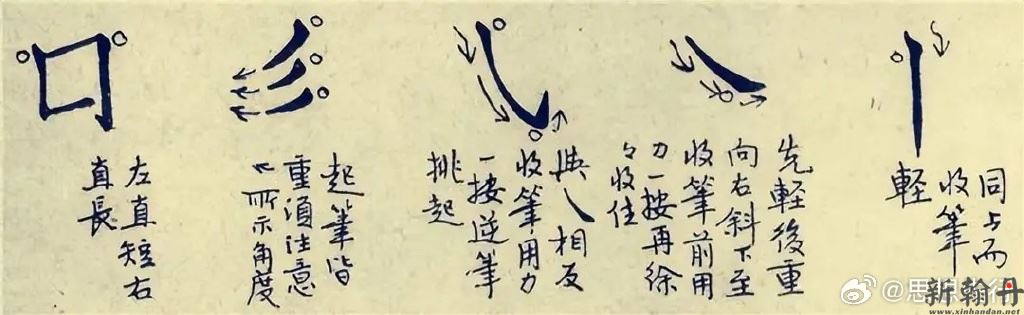 同上而
收筆
輕
先輕後重
向右斜下至
收筆前用
力一按再徐
々收住
與乀相反
收筆用力
一接逆筆
挑起
起筆皆
重須注意
所示角度
左直短右
直長
新翰丹
www.xinhandan.net